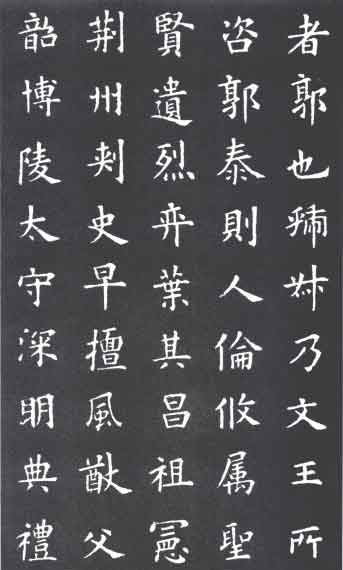 者郭也虢叔乃文王所
咨郭泰則人倫攸属聖
賢遺烈弈葉其昌祖憲
荆州刺史早擅風猷父
韶博陵太守深明典禮